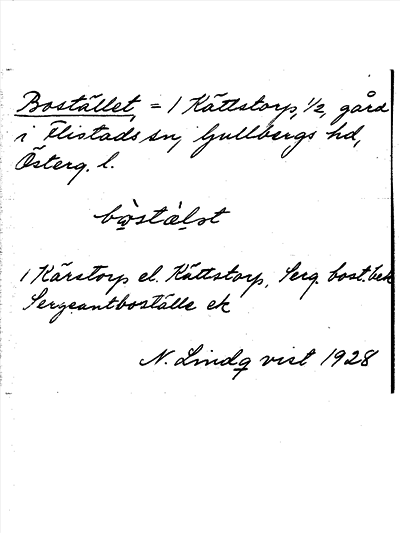 Bostället, = 1 Kättstorp, 1/2, gård
i Flistads sn, Gullbergs hd,
Österg. l.
bo̤̊stälət
1 Kärstorp el. Kättstorp, Serg. bost. bek
Sergeantboställe ek
N. Lindqvist 1928